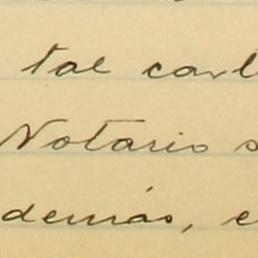 tal carl
Notario s
demás, e